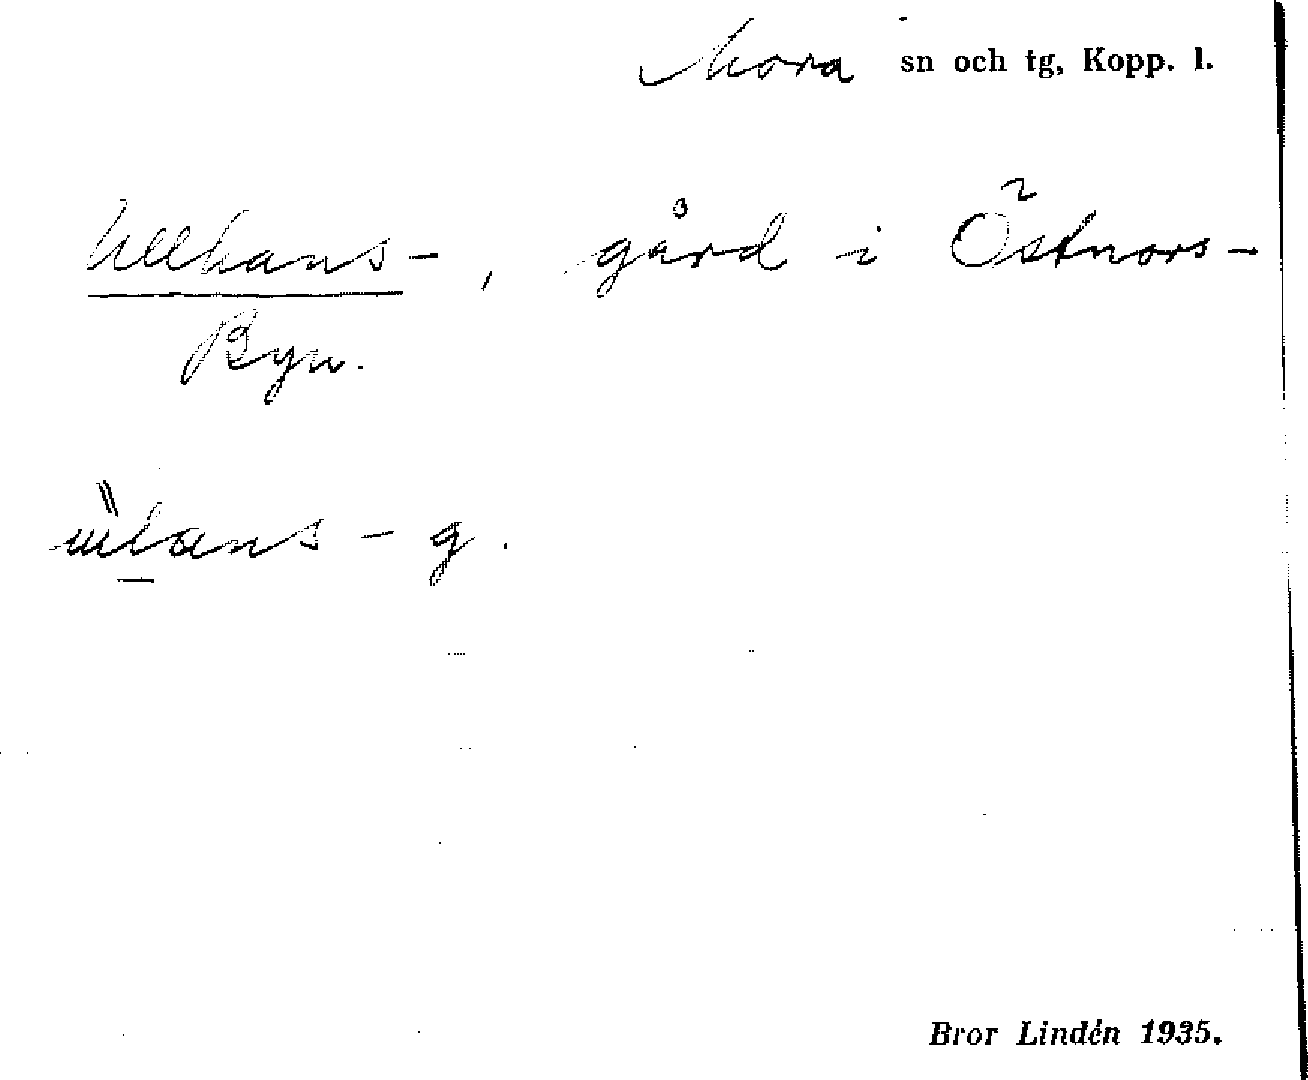 Mora sn och tg, Kopp. l.
Ullhans-, gård i Östnors-
Byn.
ülans - g.
Bror Lindén 1935.